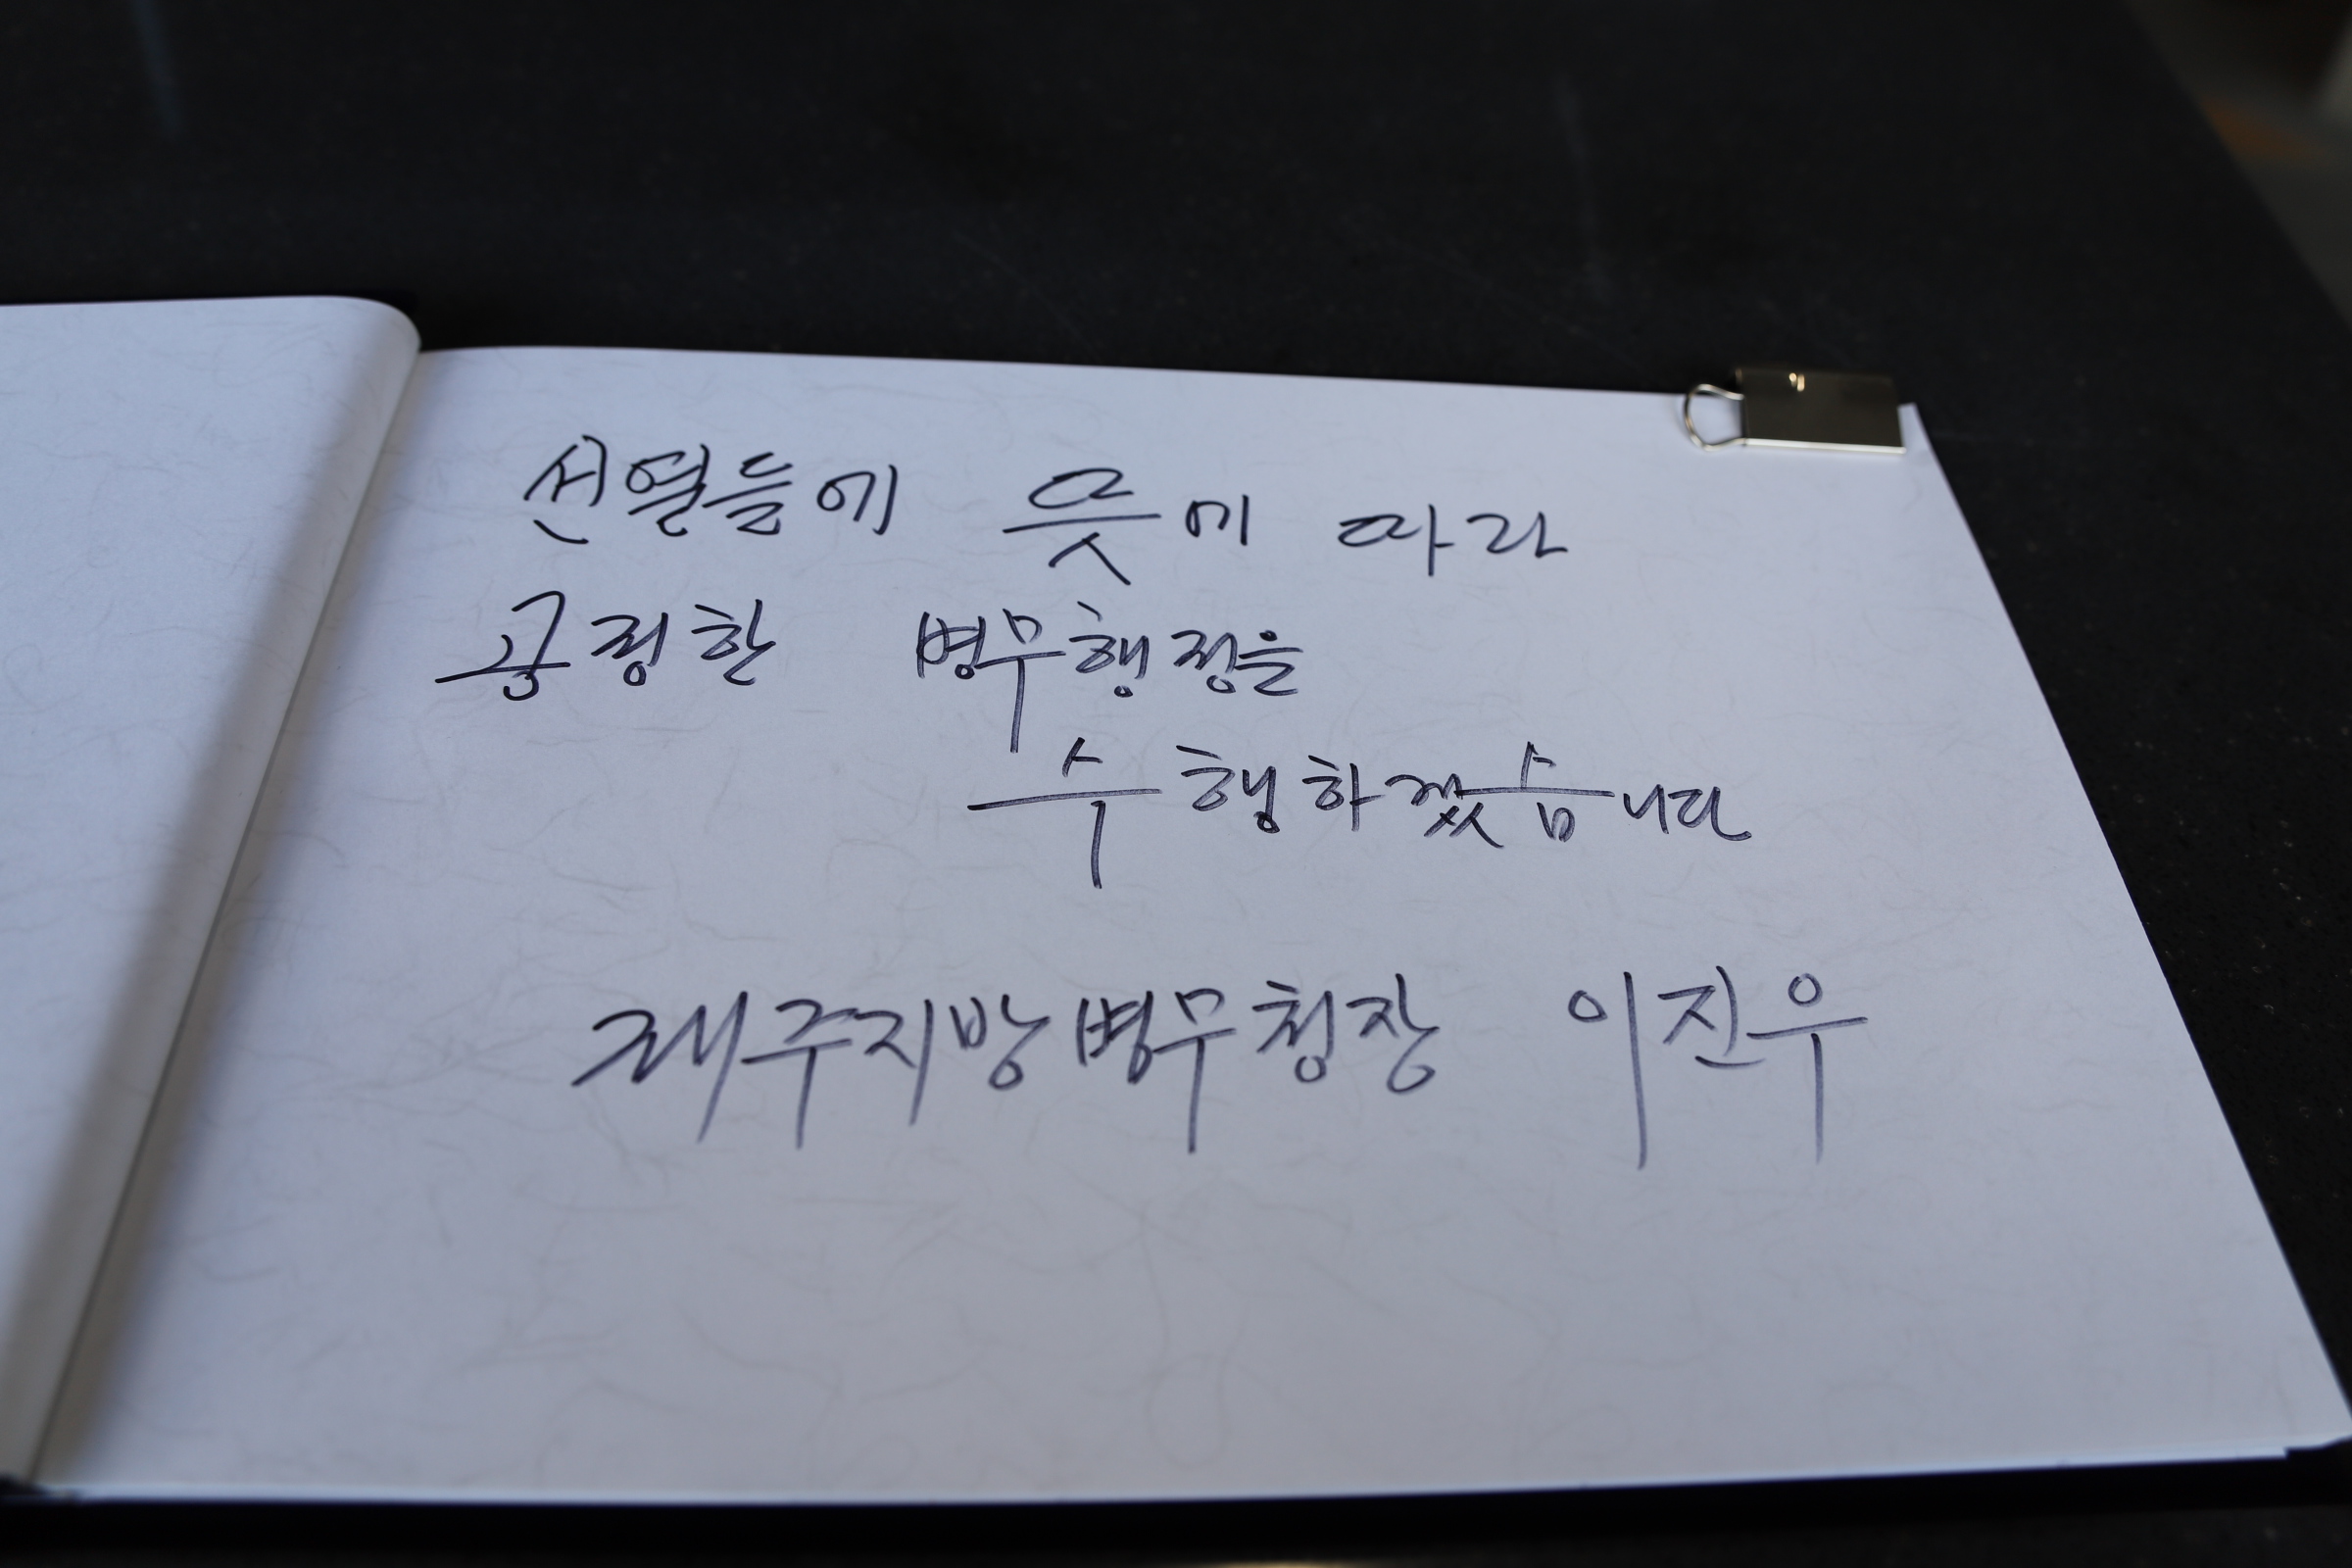 선열들에 뜻에 따라
공정한 병무행정을
수행하겠습니다
제주지방병무청장 이진우